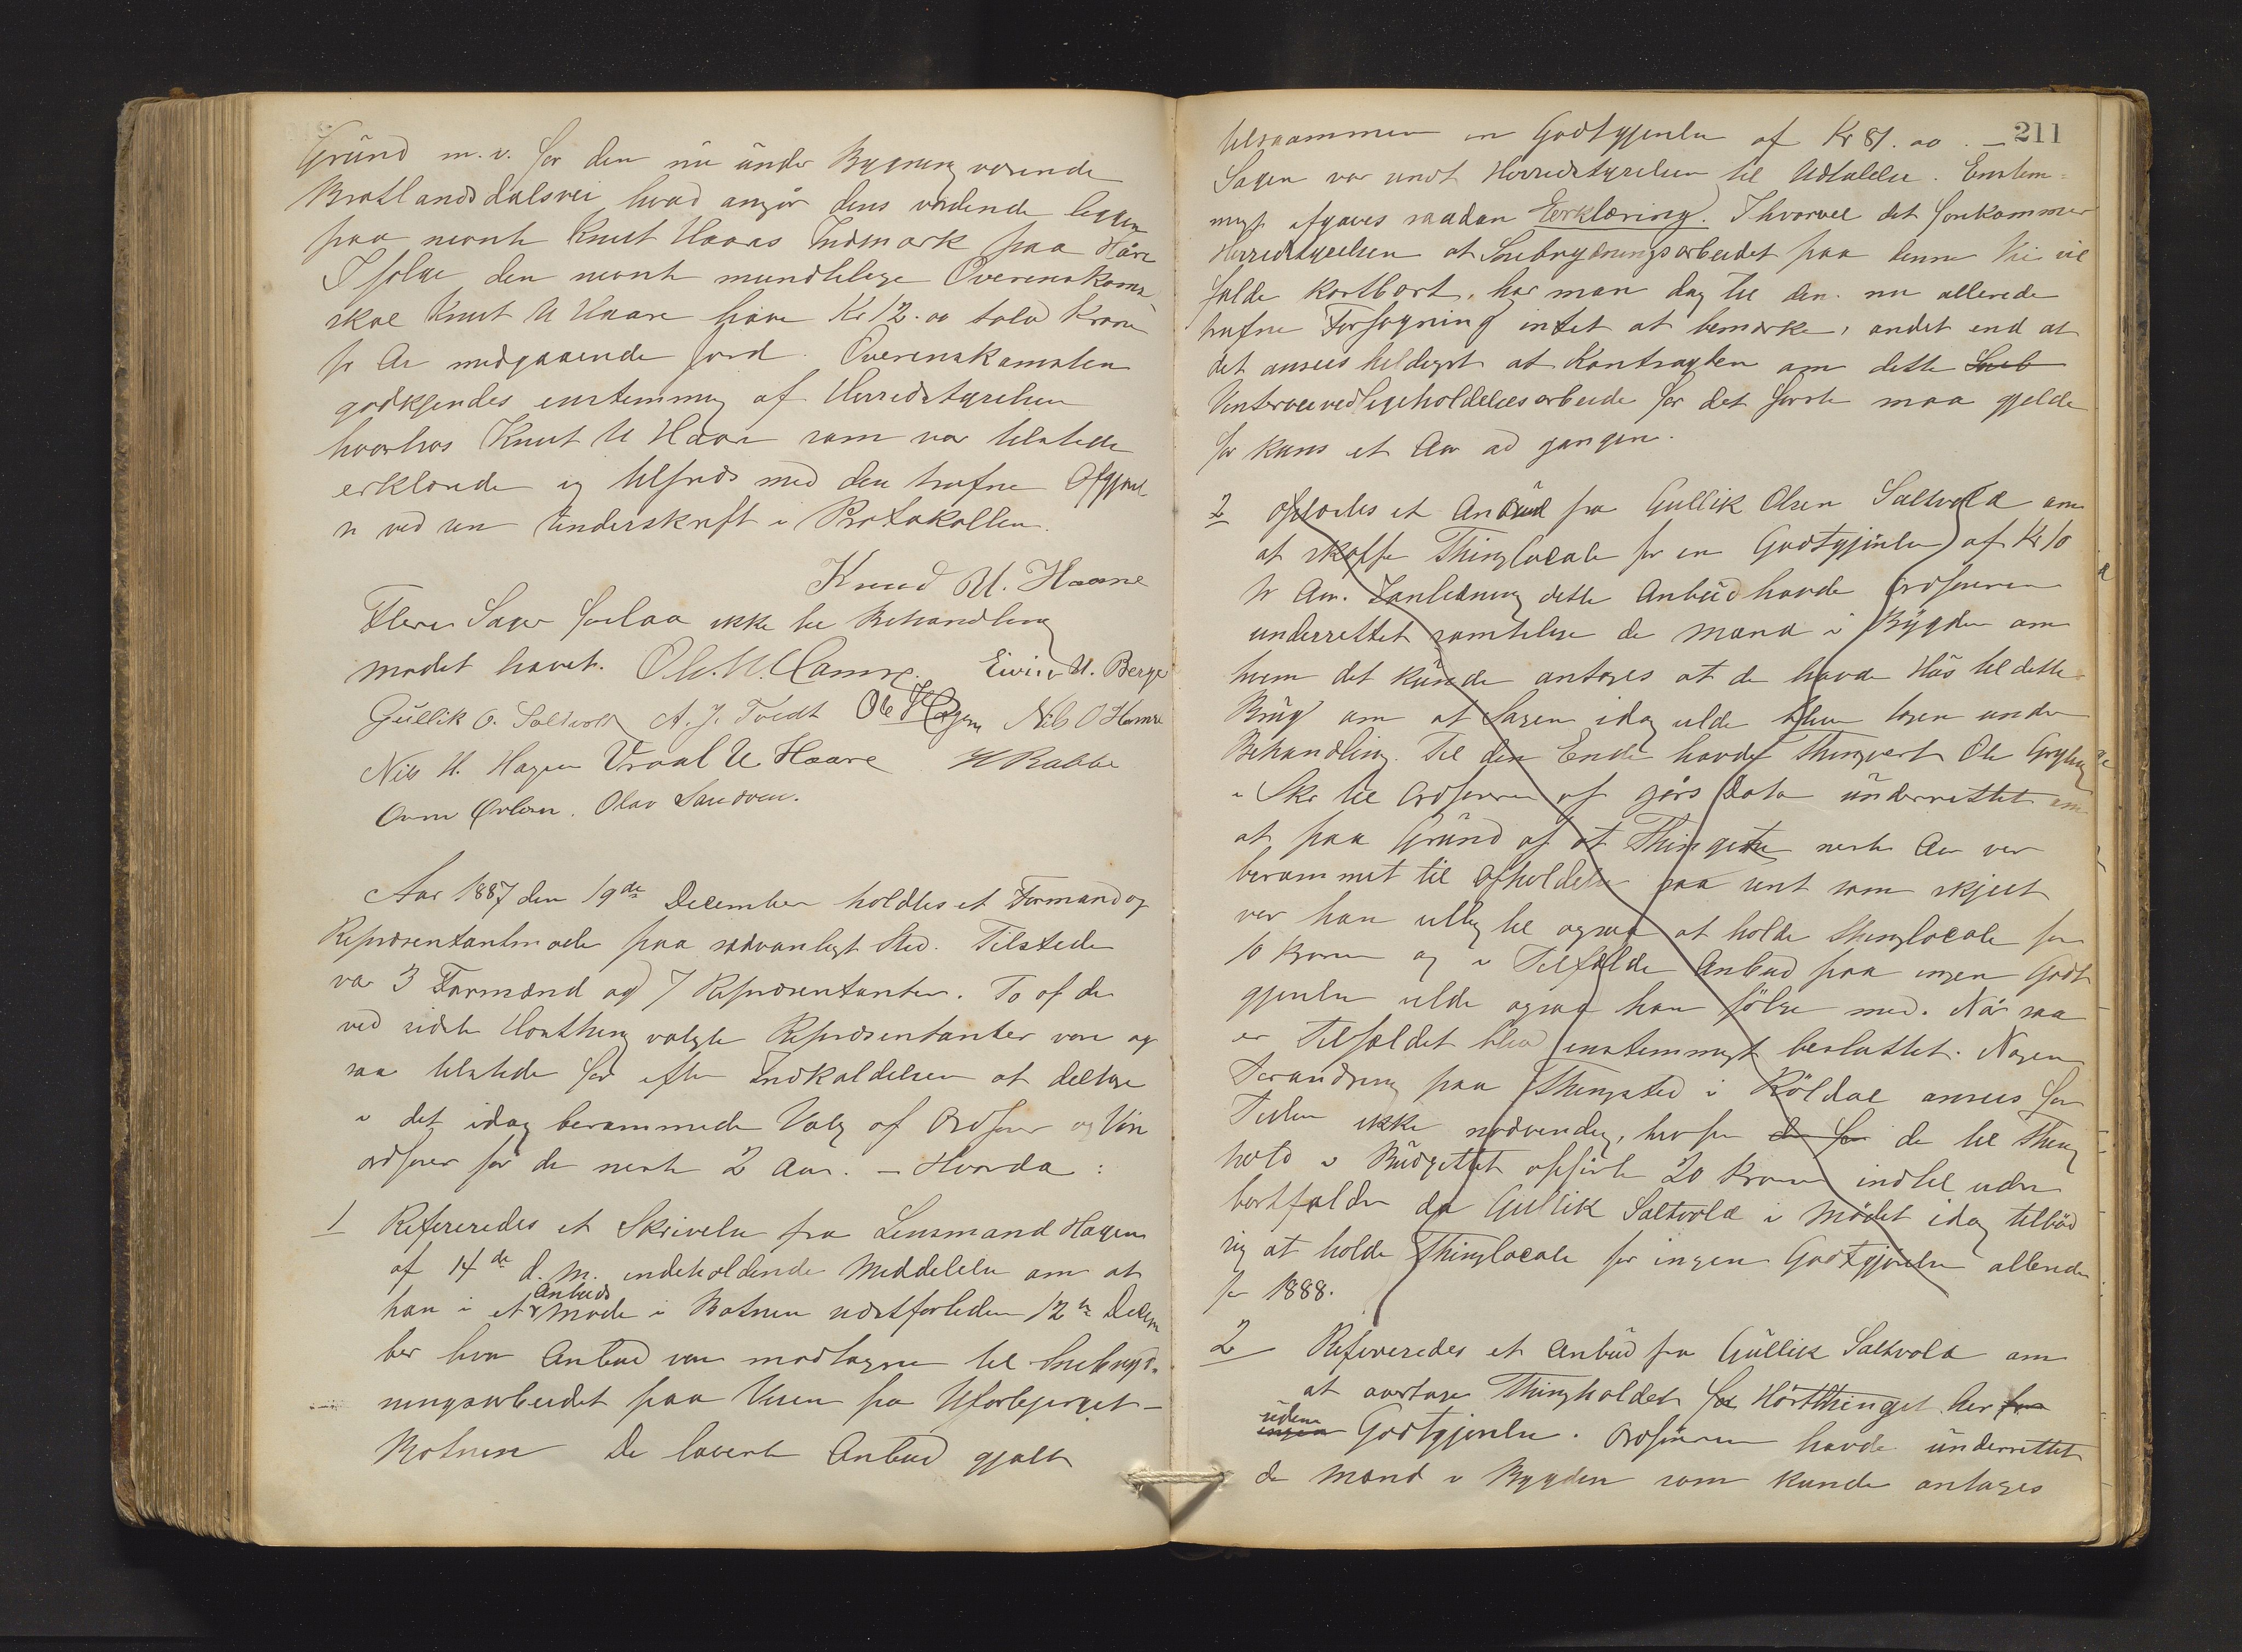 Grund m. v. for den nu under Bygning værende
Bratlandsdalsvei hvad angår dens vordende
paa nævnte Knut Haares Indmark paa Håre
Ifølge den nævnte mundtlige Overenskomst
skal Knut U Haare have Kr 12.00 tolv Kroner
pr Ar medgaaende Jord. Overenskomsten
godkjendes enstemmig af Herredstyrelsen
hvorhos Knut U Haare som var tilstede
erklærede sig tilfreds med den trufne Afgjørelse
ved sin Underskrift i Protokollen.
Knud U. Haare
Flere Sager forelaa ikke til Behandling
mødet hævet. Ole. N. Hamre. Eivind U. Berge
Gullik O. Saltvold A. J. Tvedt Ole Hagen Nils O Hamre
Nils U. Hagen Vraal U Haare H Rabbe
Olav Sandven.
Aar 1887 den 19de December holdtes et Formand og
Repræsentantmøde paa sædvanligt Sted. Tilstede
var 3 Formænd og 7 Repræsentanter. To af de
ved sidste Høstthing valgte Repræsentanter vare og
saa tilstede for efter Indkaldelsen at deltage
i det idag berammede Valg af Ordfører og Vice
ordfører for de neste 2 Aar. – Hvorda:
1 Refereredes et Skrivelse fra Lensmand Hagen
af 14de d. M. indeholdende Meddelelse om at
han i et Anbuds møde i Botnen næstforleden 12te Decem
ber hvor Anbud var modtagne til Snebryd-
ningsarbeidet paa Veien fra Uforbjerget –
Botnen De laveste Anbud gjaldt
211
tilsammen en Godtgjørelse af Kr 81.00. –
Sagen var sendt Herredstyrelsen til Udtalelse. Enstem-
migt afgaves saadan Erklæring. Ihvorvel det forekommer
Herredstyrelsen at Snebrydningsarbeidet paa denne Vei vil
falde kostbart, har man dog til den nu allerede
trufne Forføyning intet at bemærke, andet end at
det ansees heldigst at Kontragten om dette Sneb
Vinterveivedligeholdelsesarbeide for det første maa gjelde
for kuns et Aar ad gangen.
2 Oplæstes et Anbud fra Gullik Olsen Saltvold om
at skaffe Thinglocale for en Godtgjørelse af Kr 10
pr Aar. Ianledning dette Anbud havde Ordføreren
underrettet samtlige de Mænd i Bygden om
hvem det kunde antages at de havde Hus til dette
Brug om at Sagen idag vilde blive tagen under
Behandling. Til den Ende havde Thingvert Ole
i Skr til Ordføreren af gårs Dato underrettet om
at paa Grund af at Thingene neste Aar var
berammet til Afholdelse paa sent som skjeet
var han villig til ogsaa at holde Thinglocale for
10 Kroner og i Tilfælde Anbud paa ingen Godt
gjørelse vilde ogsaa han følge med. Når saa
er Tilfældet blev enstemmigt besluttet. Nogen
Forandring paa Thingsted i Röldal ansees for
Tiden ikke nødvendig, hvorfor de for de til Thing
hold i Budgettet opførte 20 Kroner indtil videre
bortfalder da Gullik Saltvold i Mødet idag tilbød
sig at holde Thinglocale for ingen Godtgjørelse allerede
for 1888.
2 Refereredes et Anbud fra Gullik Saltvold om
at overtage Thingholdet for Hörtthinget her for
uden ingen Godtgjørelse. Ordføreren havde underrettet
de Mænd i Bygden som kunde antages